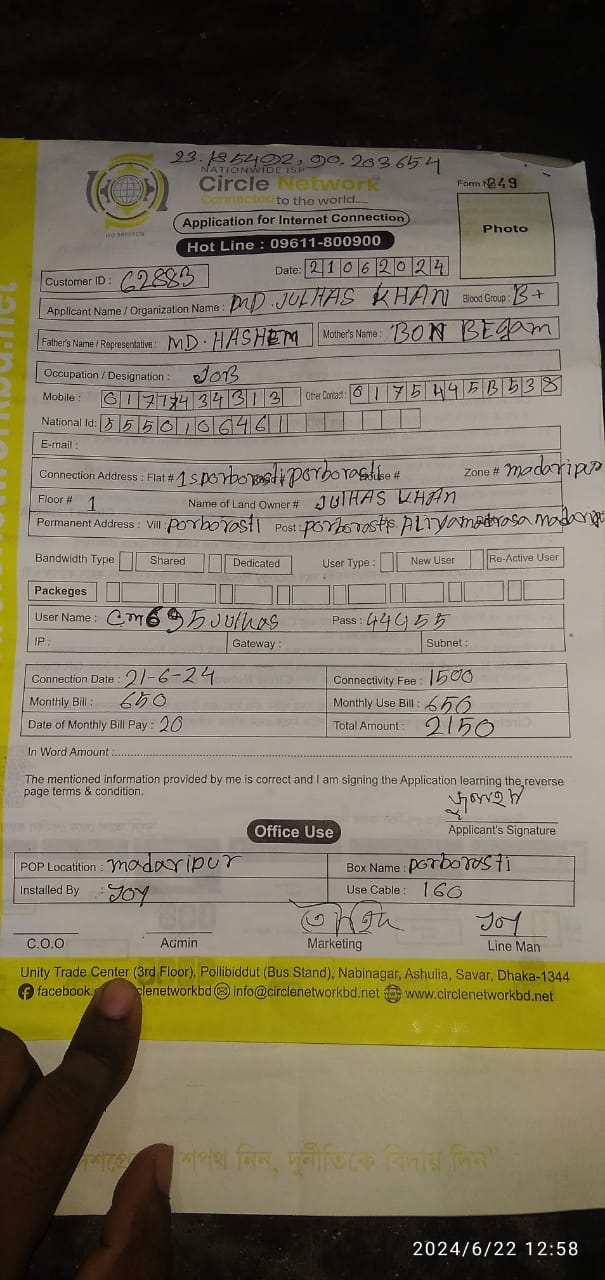 23.185402, 90.203654
NATIONWIDE ISP
Circle Network
Connected to the world.....
Form № 349
Photo
Application for Internet Connection
Hot Line : 09611-800900
Customer ID : 62883
Date: 21062024
Applicant Name / Organization Name : MD. JULHAS KHAN Blood Group : B+
Father's Name / Representative : MD. HASHEM Mother's Name : BON BEGAM
Occupation / Designation : JOB
Mobile : Other Contact :
National Id: 5550106461
E-mail :
Connection Address : Flat # 1 House # Zone # madaripur
Floor # 1 Name of Land Owner # JUlHAS KHAN
Permanent Address : Vill : porborasti Post :
Bandwidth Type Shared Dedicated User Type : New User Re-Active User
Packeges
User Name : Cm695Julhas Pass : 44955
IP : Gateway : Subnet :
Connection Date : 21-6-24 Connectivity Fee : 1500
Monthly Bill : 650 Monthly Use Bill : 650
Date of Monthly Bill Pay : 20 Total Amount : 2150
In Word Amount :
The mentioned information provided by me is correct and I am signing the Application learning the reverse
page terms & condition.
জুলহাস
Applicant's Signature
Office Use
POP Locatition : madaripur Box Name : porborasti
Installed By : JOY Use Cable : 160
JOY
C.O.O Admin Marketing Line Man
Unity Trade Center (3rd Floor), Pollibiddut (Bus Stand), Nabinagar, Ashulia, Savar, Dhaka-1344
facebook. clenetworkbd info@circlenetworkbd.net www.circlenetworkbd.net
শপথ নিন, দুর্নীতিকে বিদায় দিন"
2024/6/22 12:58